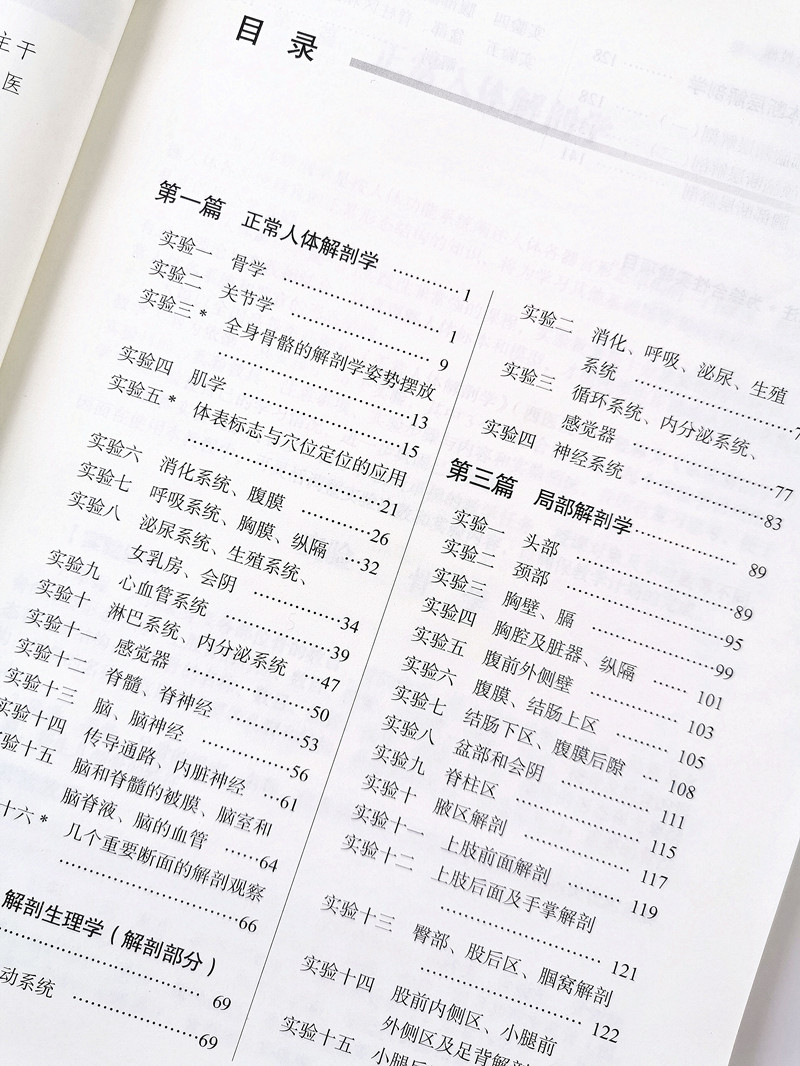 主干
医
目 录
第一篇 正常人体解剖学 ………… 1
实验一 骨学 ………… 1
实验二 关节学 ………… 9
实验三* 全身骨骼的解剖学姿势摆放
………… 13
实验四 肌学 ………… 15
实验五* 体表标志与穴位定位的应用
………… 21
实验六 消化系统、腹膜 ………… 26
实验七 呼吸系统、胸膜、纵隔 …32
实验八 泌尿系统、生殖系统、
女乳房、会阴 ………… 34
实验九 心血管系统 ………… 39
实验十 淋巴系统、内分泌系统 …47
实验十一 感觉器 ………… 50
实验十二 脊髓、脊神经 ………… 53
实验十三 脑、脑神经 ………… 56
实验十四 传导通路、内脏神经 …61
验十五 脑和脊髓的被膜、脑室和
脑脊液、脑的血管 ……64
十六* 几个重要断面的解剖观察
………… 66
解剖生理学（解剖部分）
………… 69
动系统 ………… 69
实验二 消化、呼吸、泌尿、生殖
系统 …………
实验三 循环系统、内分泌系统、
感觉器 ………… 77
实验四 神经系统 ………… 83
第三篇 局部解剖学 ………… 89
实验一 头部 ………… 89
实验二 颈部 ………… 95
实验三 胸壁、膈 ………… 99
实验四 胸腔及脏器、纵隔 …… 101
实验五 腹前外侧壁 ………… 103
实验六 腹膜、结肠上区 ……… 105
实验七 结肠下区、腹膜后隙 … 108
实验八 盆部和会阴 ………… 111
实验九 脊柱区 ………… 115
实验十 腋区解剖 ………… 117
实验十一 上肢前面解剖 ……… 119
实验十二 上肢后面及手掌解剖
………… 121
实验十三 臀部、股后区、腘窝解剖
………… 122
实验十四 股前内侧区、小腿前
外侧区及足背解剖
实验十五 小腿后